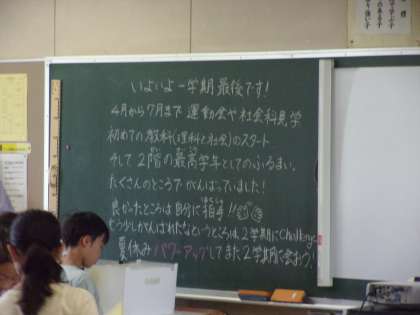 いよいよ一学期最後です!
4月から7月まで 運動会や社会科見学
初めての教科(理科と社会)のスタート
そして2階の最高学年としてのふるまい。
たくさんのところでがんばっていました!
良かったところは自分に拍手!!
もう少しがんばれたなというところは、2学期にChallenge
夏休みパワーアップしてまた2学期に会おう!